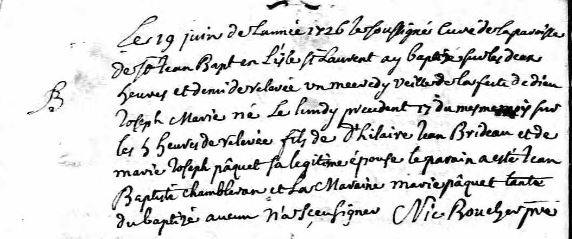 Le 19 juin de L'année 1726 Je soussigné Curé de La paroisse
de St Jean Bapt en L'isle St Laurent ay baptizé sur les deux
heures et demi de relevée un mecredy veille de La feste de dieu
B
Joseph Marie né Le lundy precedent 17 du mesme mois sur
les 5 heures de relevée fils de St hilaire Jean Brideau et de
marie Joseph pâquet sa legitime épouse le parain a esté Jean
Baptiste chamblevan et La Maraine marie pâquet tante
du baptizé aucun n'a sceu signer Nic Boucher ptre